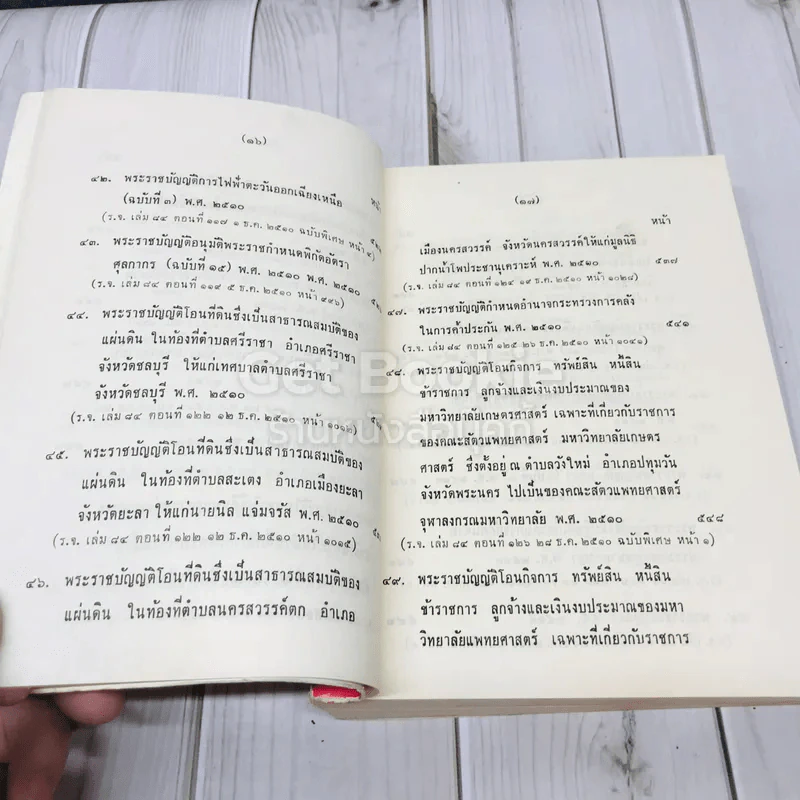 (๑๖)
หน้า
๔๒. พระราชบัญญัติการไฟฟ้าตะวันออกเฉียงเหนือ
(ฉบับที่ ๓) พ.ศ. ๒๕๑๐
(ร.จ. เล่ม ๘๔ ตอนที่ ๑๑๗ ๑ ธ.ค. ๒๕๑๐ ฉบับพิเศษ หน้า ๙)
๔๓. พระราชบัญญัติอนุมัติพระราชกำหนดพิกัดอัตรา
ศุลกากร (ฉบับที่ ๑๕) พ.ศ. ๒๕๑๐ พ.ศ. ๒๕๑๐
(ร.จ. เล่ม ๘๔ ตอนที่ ๑๑๙ ๕ ธ.ค. ๒๕๑๐ หน้า ๙๙๖)
๔๔. พระราชบัญญัติโอนที่ดินซึ่งเป็นสาธารณสมบัติของ
แผ่นดิน ในท้องที่ตำบลศรีราชา อำเภอศรีราชา
จังหวัดชลบุรี ให้แก่เทศบาลตำบลศรีราชา
จังหวัดชลบุรี พ.ศ. ๒๕๑๐
(ร.จ. เล่ม ๘๔ ตอนที่ ๑๒๒ ๑๒ ธ.ค. ๒๕๑๐ หน้า ๑๐๑๒)
๔๕. พระราชบัญญัติโอนที่ดินซึ่งเป็นสาธารณสมบัติของ
แผ่นดิน ในท้องที่ตำบลสะเตง อำเภอเมืองยะลา
จังหวัดยะลา ให้แก่นายนิล แจ่มจรัส พ.ศ. ๒๕๑๐
(ร.จ. เล่ม ๘๔ ตอนที่ ๑๒๒ ๑๒ ธ.ค. ๒๕๑๐ หน้า ๑๐๑๕)
๔๖. พระราชบัญญัติโอนที่ดินซึ่งเป็นสาธารณสมบัติของ
แผ่นดิน ในท้องที่ตำบลนครสวรรค์ตก อำเภอ
(๑๗)
หน้า
เมืองนครสวรรค์ จังหวัดนครสวรรค์ให้แก่มูลนิธิ
ปากน้ำโพประชานุเคราะห์ พ.ศ. ๒๕๑๐ ๕๓๗
(ร.จ. เล่ม ๘๔ ตอนที่ ๑๒๔ ๑๙ ธ.ค. ๒๕๑๐ หน้า ๑๐๒๘)
๔๗. พระราชบัญญัติกำหนดอำนาจกระทรวงการคลัง
ในการค้ำประกัน พ.ศ. ๒๕๑๐ ๕๔๑
(ร.จ. เล่ม ๘๔ ตอนที่ ๑๒๕ ๒๖ ธ.ค. ๒๕๑๐ หน้า ๑๐๔๑)
๔๘. พระราชบัญญัติโอนกิจการ ทรัพย์สิน หนี้สิน
ข้าราชการ ลูกจ้างและเงินงบประมาณของ
มหาวิทยาลัยเกษตรศาสตร์ เฉพาะที่เกี่ยวกับราชการ
ของคณะสัตวแพทยศาสตร์ มหาวิทยาลัยเกษตร
ศาสตร์ ซึ่งตั้งอยู่ ณ ตำบลวังใหม่ อำเภอปทุมวัน
จังหวัดพระนคร ไปเป็นของคณะสัตวแพทยศาสตร์
จุฬาลงกรณมหาวิทยาลัย พ.ศ. ๒๕๑๐ ๕๔๘
(ร.จ. เล่ม ๘๔ ตอนที่ ๑๒๖ ๒๘ ธ.ค. ๒๕๑๐ ฉบับพิเศษ หน้า ๑)
๔๙. พระราชบัญญัติโอนกิจการ ทรัพย์สิน หนี้สิน
ข้าราชการ ลูกจ้างและเงินงบประมาณของมหา
วิทยาลัยแพทยศาสตร์ เฉพาะที่เกี่ยวกับราชการ